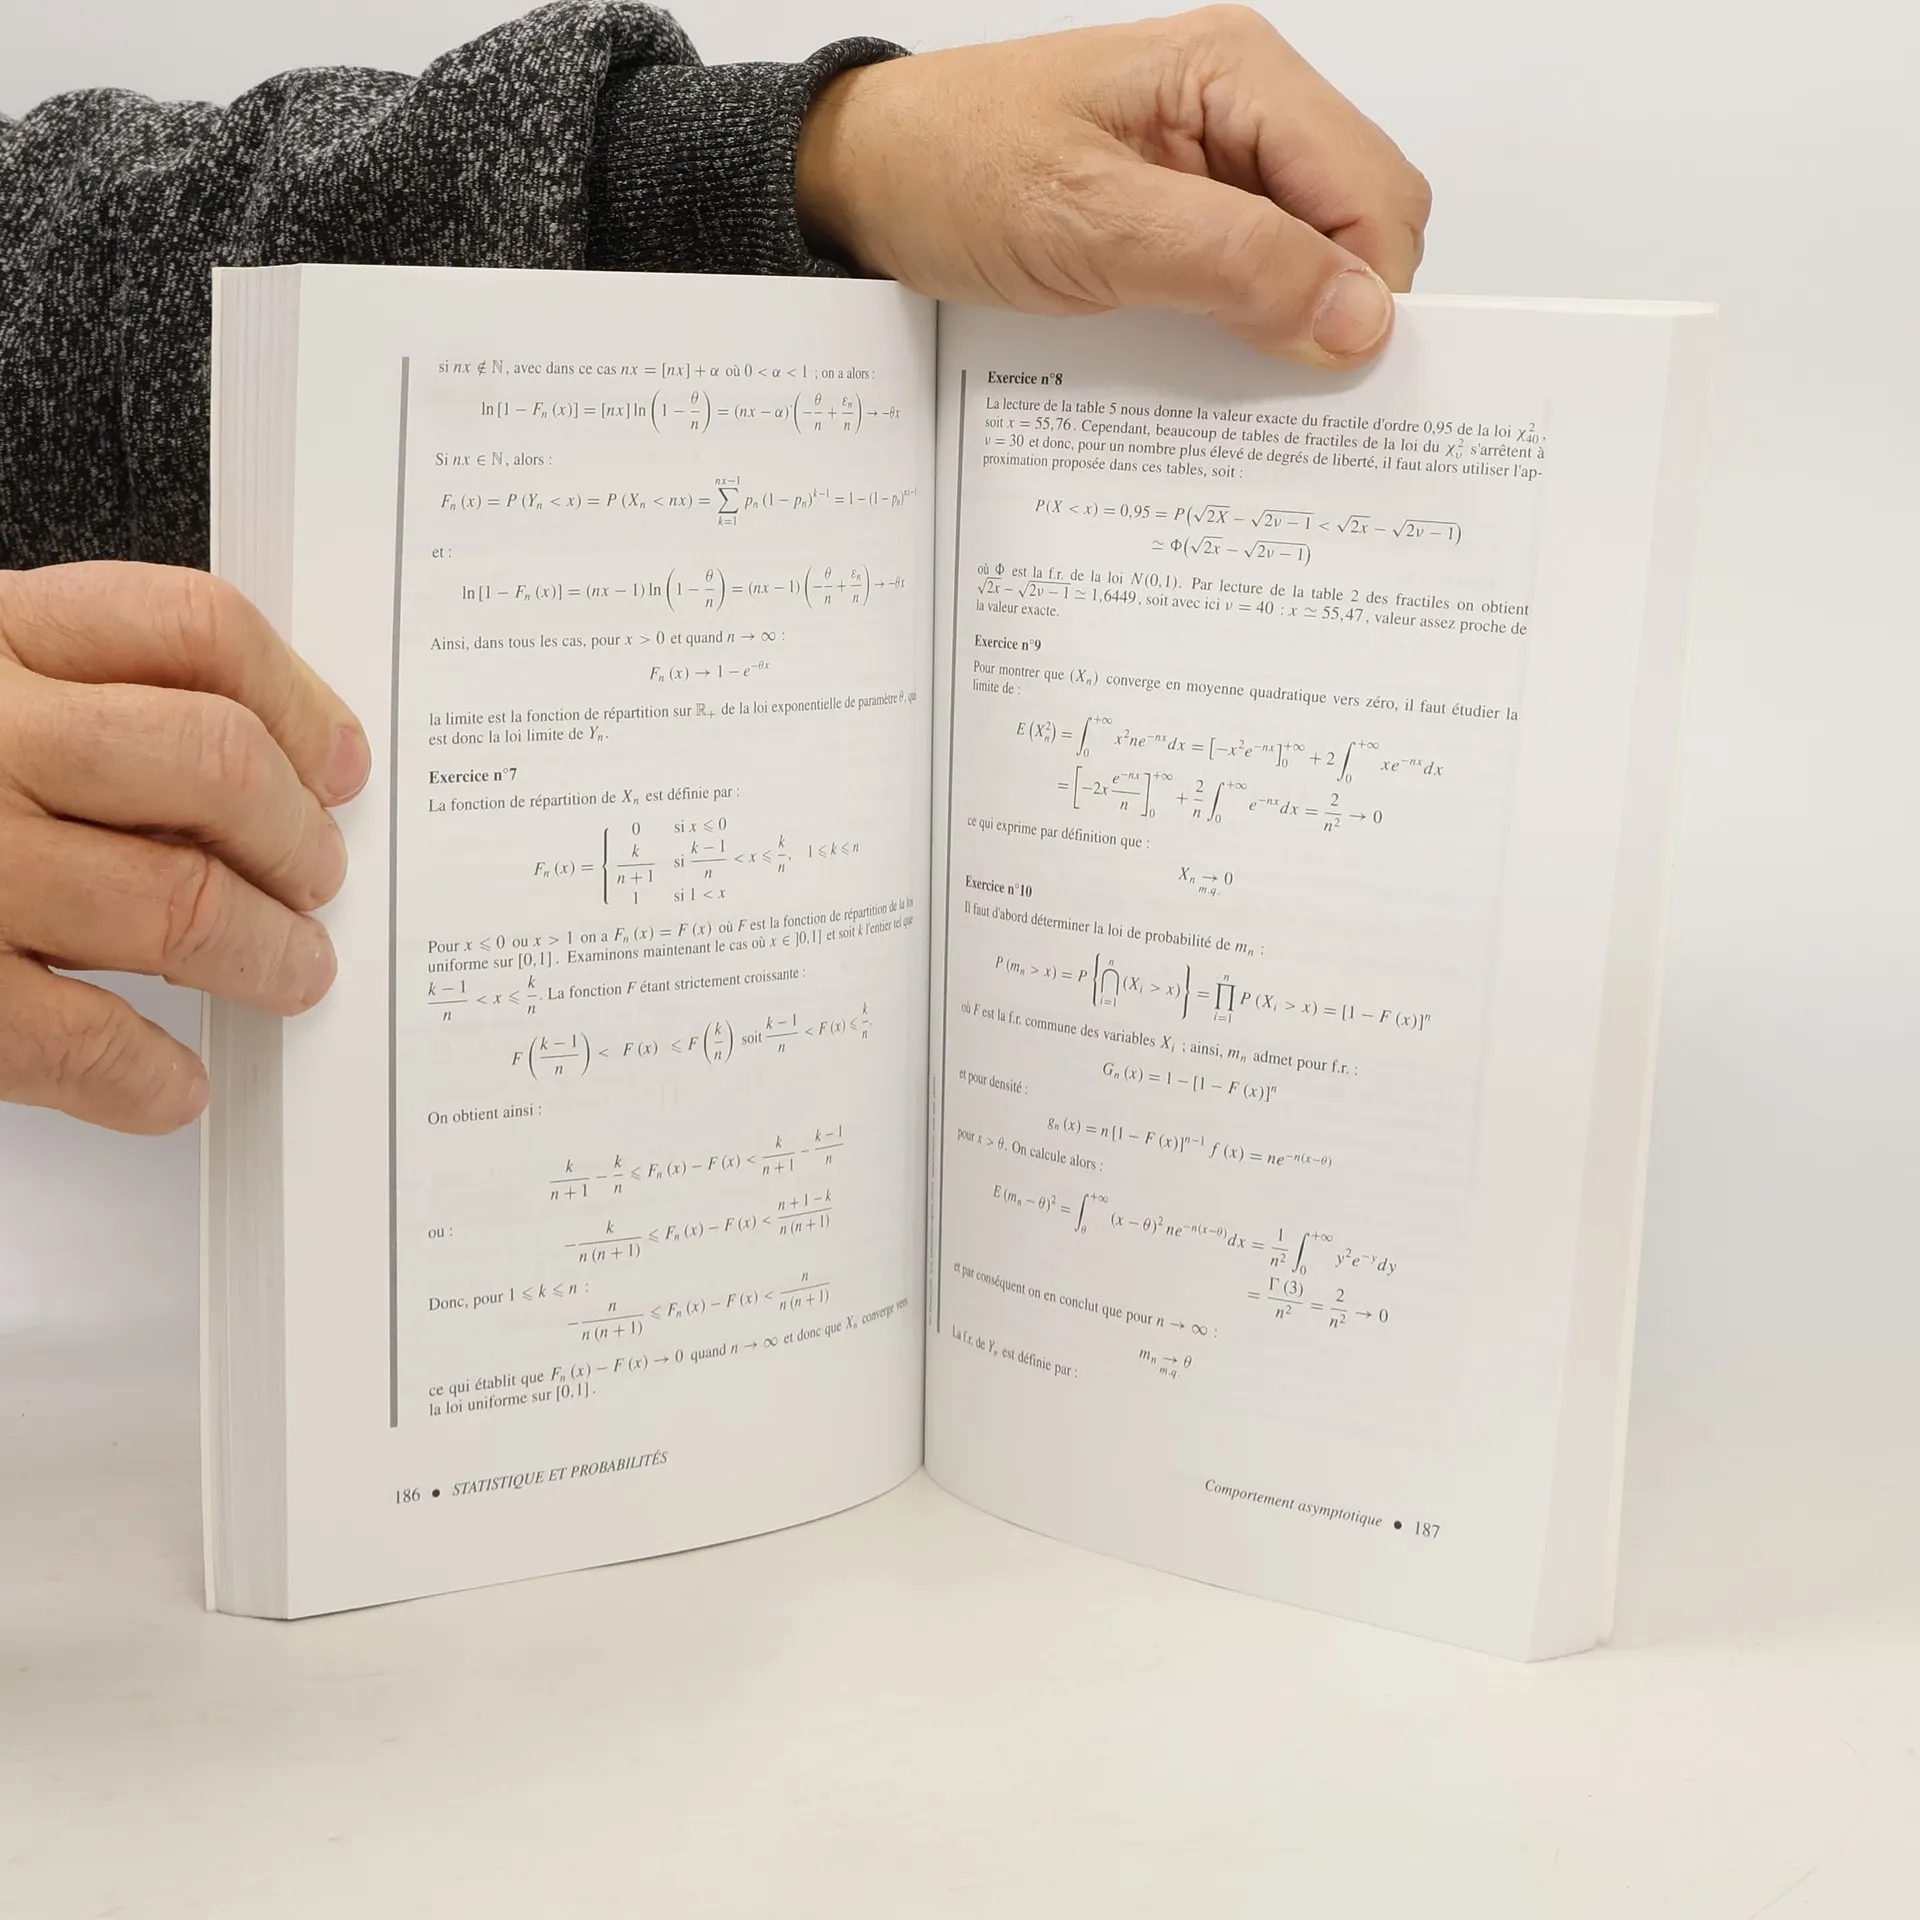 si nx ∉ ℕ, avec dans ce cas nx = [nx] + α où 0 < α < 1 ; on a alors :
ln [1 − Fₙ (x)] = [nx] ln (1 − θ/n) = (nx − α) (−θ/n + εₙ/n) → −θx
Si nx ∈ ℕ, alors :
Fₙ (x) = P (Yₙ < x) = P (Xₙ < nx) = ∑_{k=1}^{nx−1} pₙ (1 − pₙ)^{k−1} = 1 − (1 − pₙ)^{nx−1}
et :
ln [1 − Fₙ (x)] = (nx − 1) ln (1 − θ/n) = (nx − 1) (−θ/n + εₙ/n) → −θx
Ainsi, dans tous les cas, pour x > 0 et quand n → ∞ :
Fₙ (x) → 1 − e^{−θx}
la limite est la fonction de répartition sur ℝ₊ de la loi exponentielle de paramètre θ, qui
est donc la loi limite de Yₙ.
Exercice n°7
La fonction de répartition de Xₙ est définie par :
Fₙ (x) = { 0 si x ⩽ 0
k/(n + 1) si (k − 1)/n < x ⩽ k/n, 1 ⩽ k ⩽ n
1 si 1 < x
Pour x ⩽ 0 ou x > 1 on a Fₙ (x) = F (x) où F est la fonction de répartition de la loi
uniforme sur [0, 1]. Examinons maintenant le cas où x ∈ ]0, 1] et soit k l'entier tel que
(k − 1)/n < x ⩽ k/n. La fonction F étant strictement croissante :
F ((k − 1)/n) < F (x) ⩽ F (k/n) soit (k − 1)/n < F (x) ⩽ k/n.
On obtient ainsi :
k/(n + 1) − k/n ⩽ Fₙ (x) − F (x) < k/(n + 1) − (k − 1)/n
ou : −k/(n (n + 1)) ⩽ Fₙ (x) − F (x) < (n + 1 − k)/(n (n + 1))
Donc, pour 1 ⩽ k ⩽ n :
−n/(n (n + 1)) ⩽ Fₙ (x) − F (x) < n/(n (n + 1))
ce qui établit que Fₙ (x) − F (x) → 0 quand n → ∞ et donc que Xₙ converge vers
la loi uniforme sur [0, 1].
186 • STATISTIQUE ET PROBABILITÉS
Exercice n°8
La lecture de la table 5 nous donne la valeur exacte du fractile d'ordre 0,95 de la loi χ²₄₀,
soit x = 55,76. Cependant, beaucoup de tables de fractiles de la loi du χ²_ν s'arrêtent à
ν = 30 et donc, pour un nombre plus élevé de degrés de liberté, il faut alors utiliser l'ap-
proximation proposée dans ces tables, soit :
P(X < x) = 0,95 = P(√(2X) − √(2ν − 1) < √(2x) − √(2ν − 1))
≃ Φ(√(2x) − √(2ν − 1))
où Φ est la f.r. de la loi N(0, 1). Par lecture de la table 2 des fractiles on obtient
√(2x) − √(2ν − 1) ≃ 1,6449, soit avec ici ν = 40 : x ≃ 55,47, valeur assez proche de
la valeur exacte.
Exercice n°9
Pour montrer que (Xₙ) converge en moyenne quadratique vers zéro, il faut étudier la
limite de :
E (Xₙ²) = ∫₀^{+∞} x²ne^{−nx}dx = [−x²e^{−nx}]₀^{+∞} + 2 ∫₀^{+∞} xe^{−nx}dx
= [−2x e^{−nx}/n]₀^{+∞} + 2/n ∫₀^{+∞} e^{−nx}dx = 2/n² → 0
ce qui exprime par définition que :
Xₙ → 0
m.q.
Exercice n°10
Il faut d'abord déterminer la loi de probabilité de mₙ :
P (mₙ > x) = P {⋂_{i=1}^{n} (Xᵢ > x)} = ∏_{i=1}^{n} P (Xᵢ > x) = [1 − F (x)]ⁿ
où F est la f.r. commune des variables Xᵢ ; ainsi, mₙ admet pour f.r. :
Gₙ (x) = 1 − [1 − F (x)]ⁿ
et pour densité :
gₙ (x) = n [1 − F (x)]^{n−1} f (x) = ne^{−n(x−θ)}
pour x > θ. On calcule alors :
E (mₙ − θ)² = ∫_θ^{+∞} (x − θ)² ne^{−n(x−θ)}dx = 1/n² ∫₀^{+∞} y²e^{−y}dy
= Γ (3)/n² = 2/n² → 0
et par conséquent on en conclut que pour n → ∞ :
mₙ → θ
m.q.
La f.r. de Yₙ est définie par :
Comportement asymptotique • 187